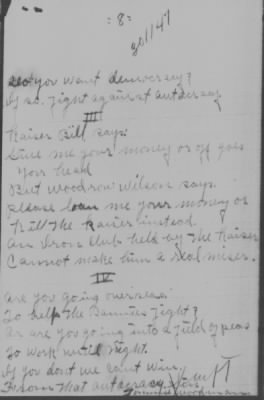 - 8 -
301147
do you want democracy?
If so. Fight against autocracy
III
Kaiser Bill says:
Give me your money or off goes
your head
But Woodrow Wilson says
please loan me your money or
kill the Kaiser instead.
An Iron Club held by the Kaiser
Cannot make him a real miser.
IV
Are you going overseas
To help the Sammies fight?
Or are you going into a field of peas
To work until night.
If you dont we cant win,
From that autocracy